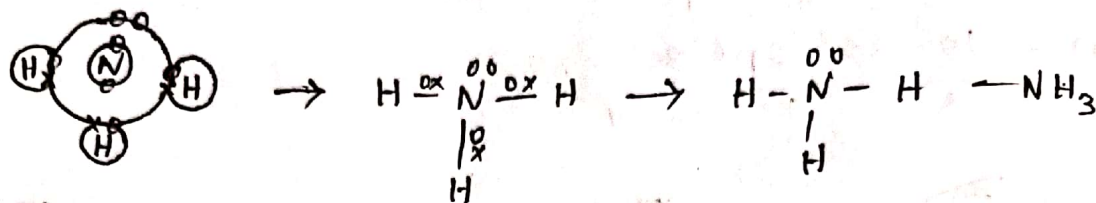 H N H H → H ox N ox H → H - N - H — NH₃
ox
H H